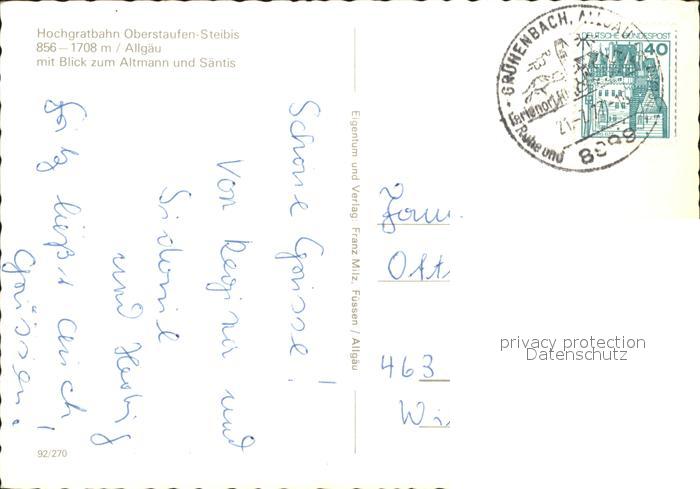 Hochgratbahn Oberstaufen-Steibis
856 — 1708 m / Allgäu
mit Blick zum Altmann und Säntis
Schöne Grüsse!
Von Regina und
Sidonie
und Hedwig
Fritz ließt Euch
Grüssen!
92/270
Eigentum und Verlag: Franz Milz, Füssen / Allgäu
GRÖNENBACH, ALLGÄU
Ferienort
Ruhe und
21.-7.
8099
DEUTSCHE BUNDESPOST
40
Fam.
463
privacy protection
Datenschutz